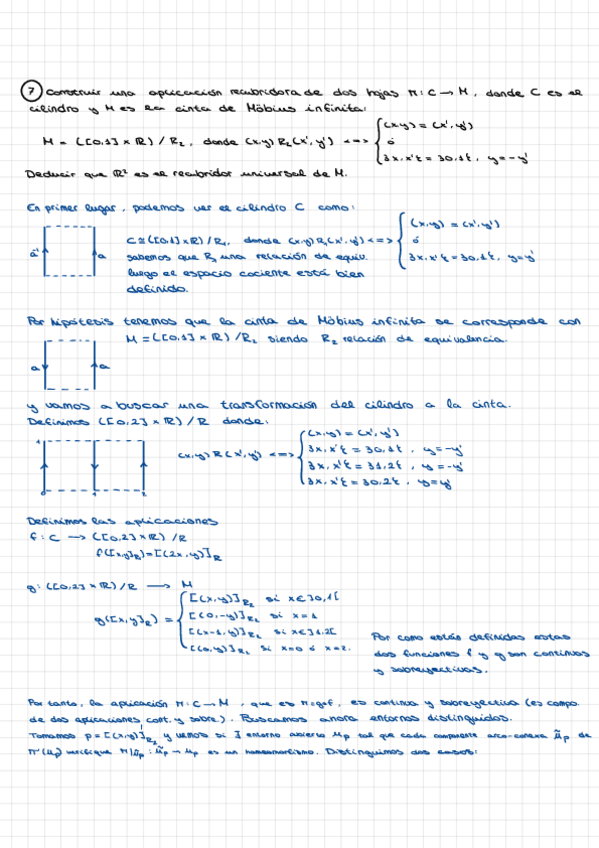 ⑦ Construir una aplicación recubridora de dos hojas π: C → M, donde C es el
cilindro y M es la cinta de Möbius infinita:
(x,y) = (x',y')
M = ([0,1] × ℝ) / R₂, donde (x,y) R₂ (x',y') <=> ó
{x,x'} = {0,1}, y = -y'
Deducir que ℝ² es el recubridor universal de M.
En primer lugar, podemos ver el cilindro C como:
(x,y) = (x',y')
a⁻¹ a C ≅ ([0,1] × ℝ) / R₁, donde (x,y) R₁ (x',y') <=> ó
sabemos que R₁ una relación de equiv. {x,x'} = {0,1}, y = y'
luego el espacio cociente está bien
definido.
Por hipótesis tenemos que la cinta de Möbius infinita se corresponde con
M = ([0,1] × ℝ) / R₂ siendo R₂ relación de equivalencia.
a a
y vamos a buscar una transformación del cilindro a la cinta.
Definimos ([0,2] × ℝ) / R donde:
(x,y) = (x',y')
(x,y) R (x',y') <=> {x,x'} = {0,1}, y = -y'
{x,x'} = {1,2}, y = -y'
{x,x'} = {0,2}, y = y'
0 1 2
Definimos las aplicaciones
f: C → ([0,2] × ℝ) / R
f([x,y]) = [(2x,y)]_R
g: ([0,2] × ℝ) / R → M
[(x,y)]_R₂ si x ∈ ]0,1[
g([x,y]_R) = [(0,-y)]_R₂ si x = 1
[(x-1,y)]_R₂ si x ∈ ]1,2[
[(0,y)]_R₂ si x = 0 ó x = 2.
Por como están definidas estas
dos funciones f y g son continuas
y sobreyectivas.
Por tanto, la aplicación π: C → M, que es π = g∘f, es continua y sobreyectiva (es compo.
de dos aplicaciones cont. y sobre.). Buscamos ahora entornos distinguidos.
Tomamos p = [(x,y)]_R₂ y vemos si ∃ entorno abierto μp tal que cada componente arco-conexa μ̃p de
π⁻¹(μp) verifique π|μ̃p : μ̃p → μp es un homeomorfismo. Distinguimos dos casos: